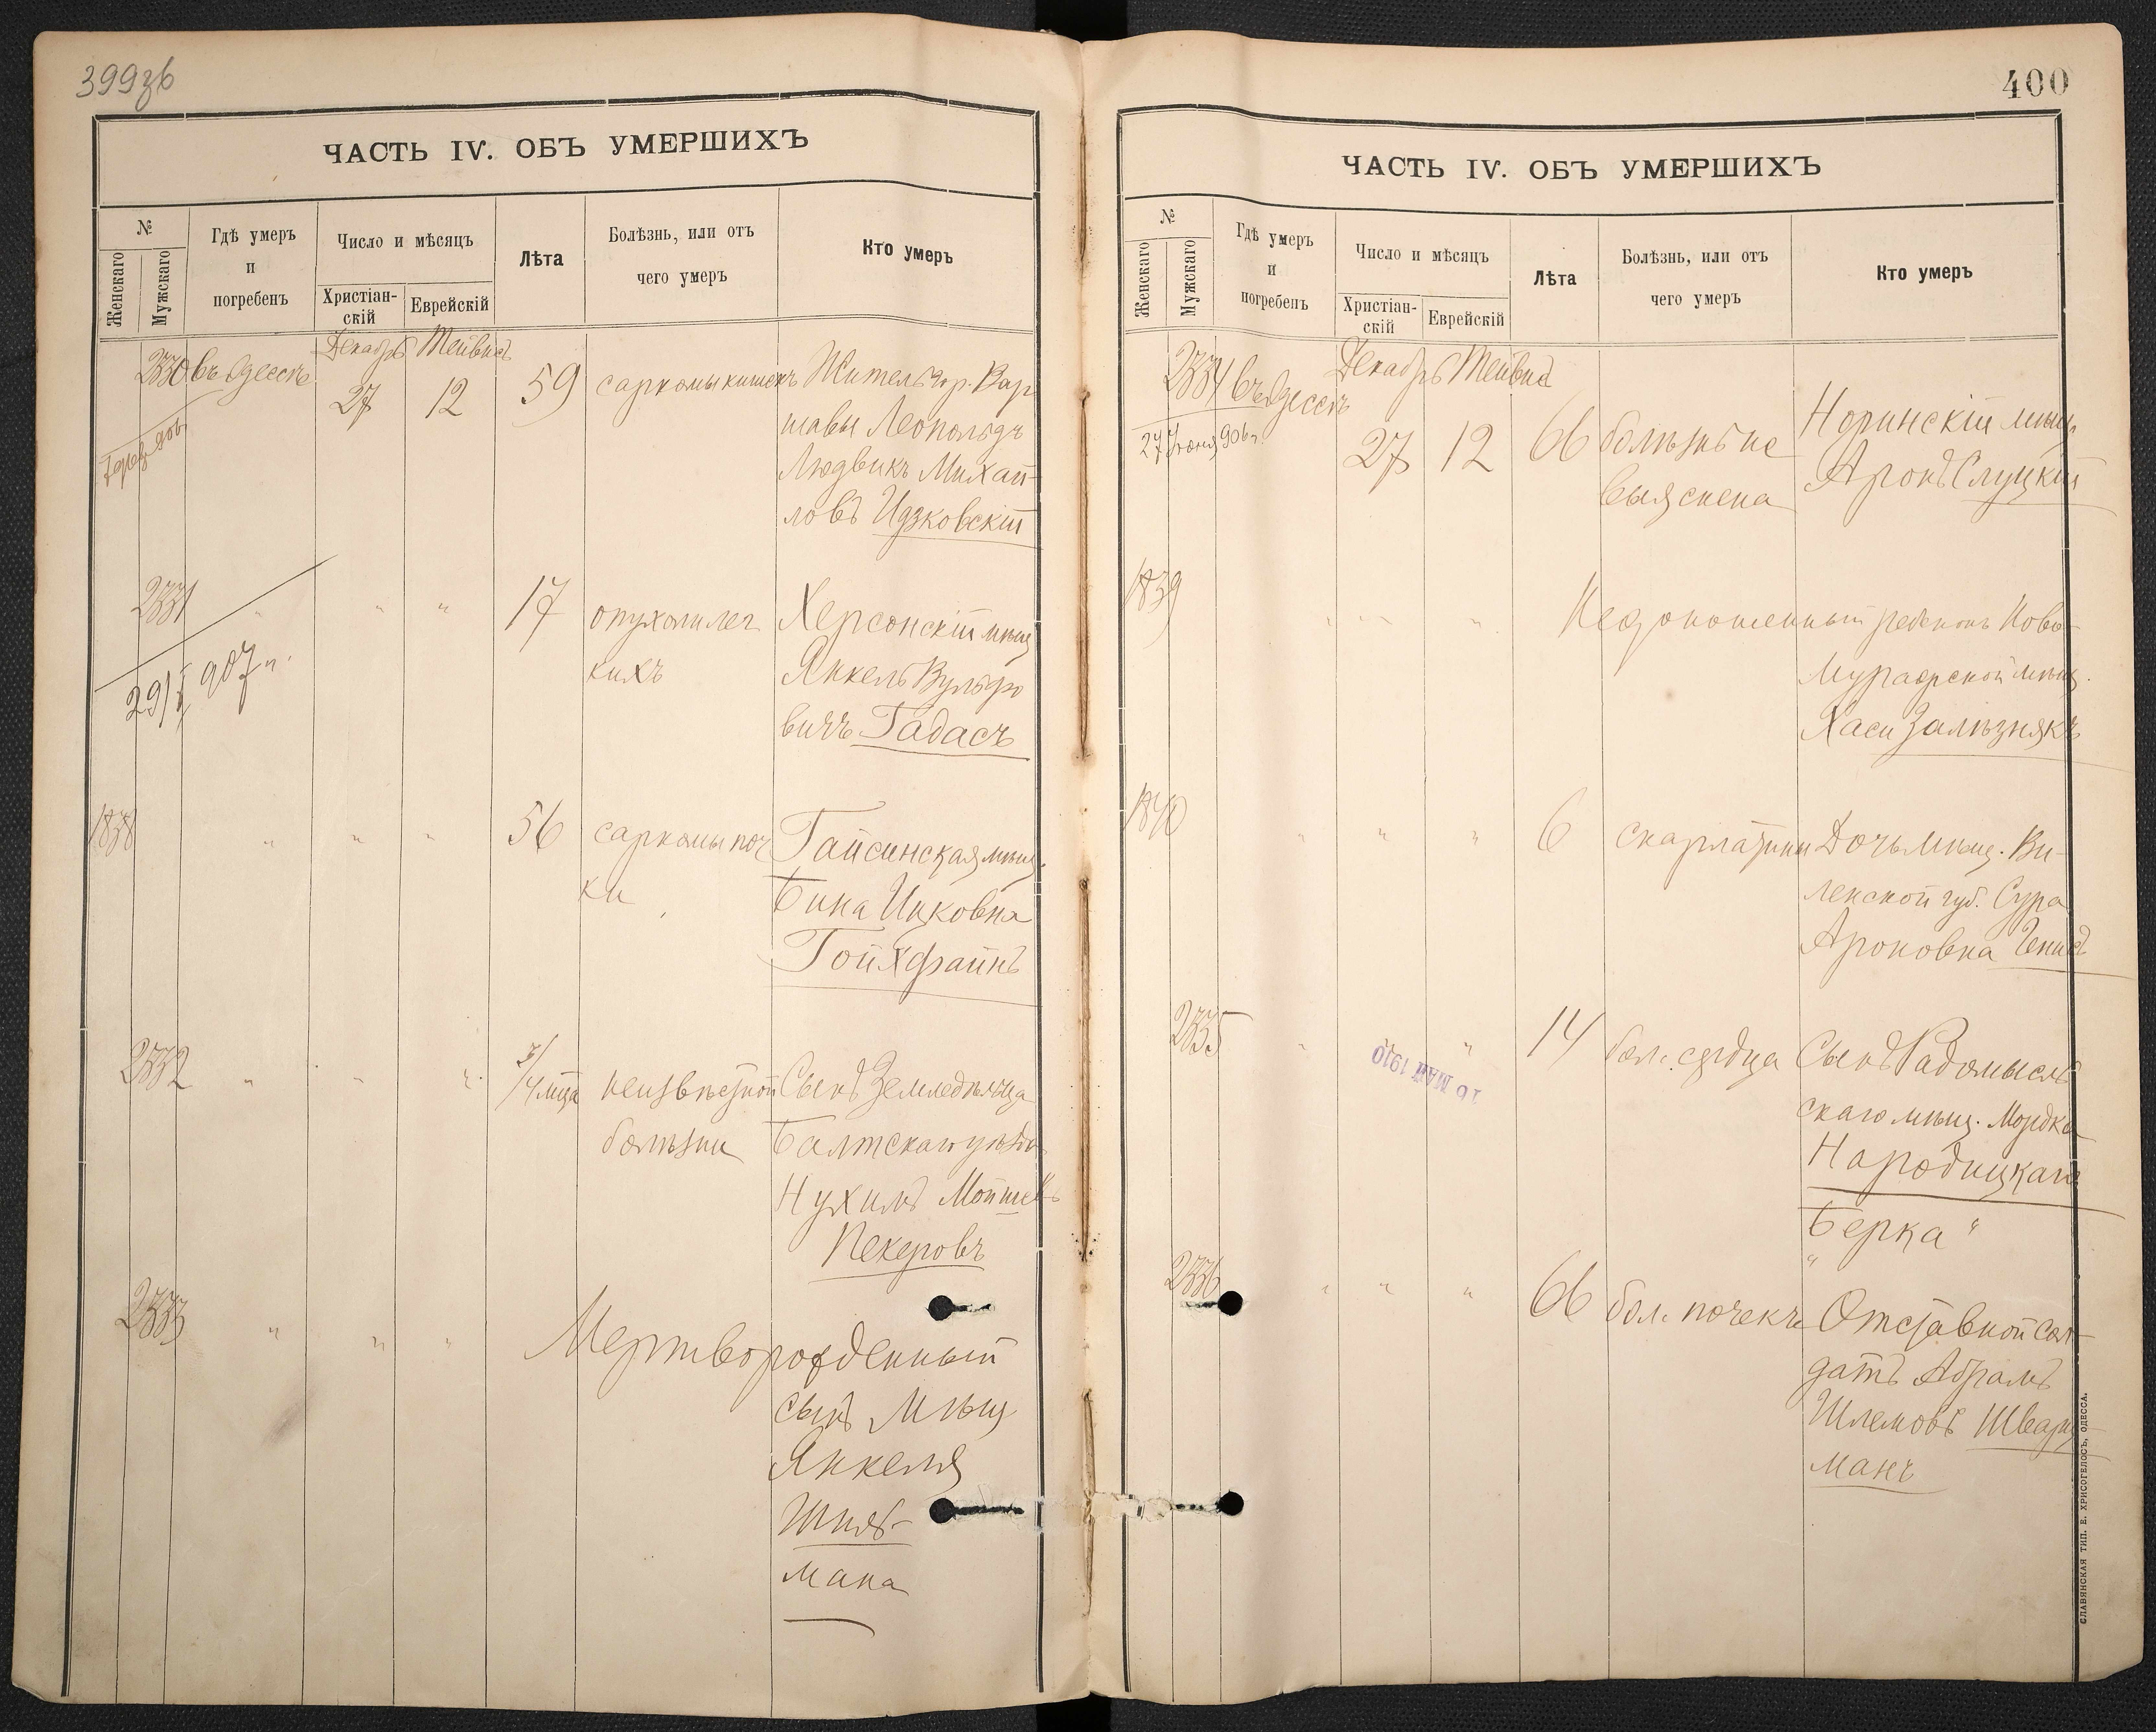 399зв
ЧАСТЬ IV. ОБЪ УМЕРШИХЪ
№
Женскаго
Мужскаго
Гдѣ умеръ
и
погребенъ
Число и мѣсяцъ
Христіан-
скій
Еврейскій
Лѣта
Болѣзнь, или отъ
чего умеръ
Кто умеръ
Декабрь Тейвисъ
2330 въ Одессѣ 27 12 59 саркомы кишекъ Житель гор. Вар
шавы Леопольдъ
Людвикъ Михай-
ловъ Идзковскій
2331 " " " 17 опухоли лег Херсонскій мѣщ
кихъ Янкель Вульфо
вичъ Гадасъ
29/I 907 г.
1838 " " " 56 саркомы поч Гайсинская мѣщ.
ки Бина Ицковна
Гойхфайнъ
2332 " " " 3/4 мца неизвѣстной Сынъ Земледѣльца
болѣзни Балтскаго уѣзда
Нухимъ Мойшек
Пекеровъ
2333 " " " Мертворожденный
сынъ Мѣщ
Янкеля
Шпиг-
мана
400
ЧАСТЬ IV. ОБЪ УМЕРШИХЪ
№
Женскаго
Мужскаго
Гдѣ умеръ
и
погребенъ
Число и мѣсяцъ
Христіан-
скій
Еврейскій
Лѣта
Болѣзнь, или отъ
чего умеръ
Кто умеръ
Декабрь Тейвисъ
2334 въ Одессѣ 27 12 66 болѣзнь не Норинскій мѣщ.
выяснена Аронъ Слуцкій
27 Іюня 906 г.
1839 " " " Недоношенный ребенокъ Ново-
Мурафской мѣщ.
Хаси Залѣзнякъ
1840 " " " 6 скарлатины Дочь мѣщ. Ви-
ленской губ. Сура
Ароновна Генисъ
2335 " " " 14 бол. сердца Сынъ Радомысль
скаго мѣщ. Мордка
Народицкаго
"Берка"
16 МАЙ 1910
2336 " " " 66 бол. почекъ Отставной сол-
датъ Абрамъ
Шлемовъ Шварц
манъ
СЛАВЯНСКАЯ ТИП. Е. ХРИСОГЕЛОСЪ, ОДЕССА.